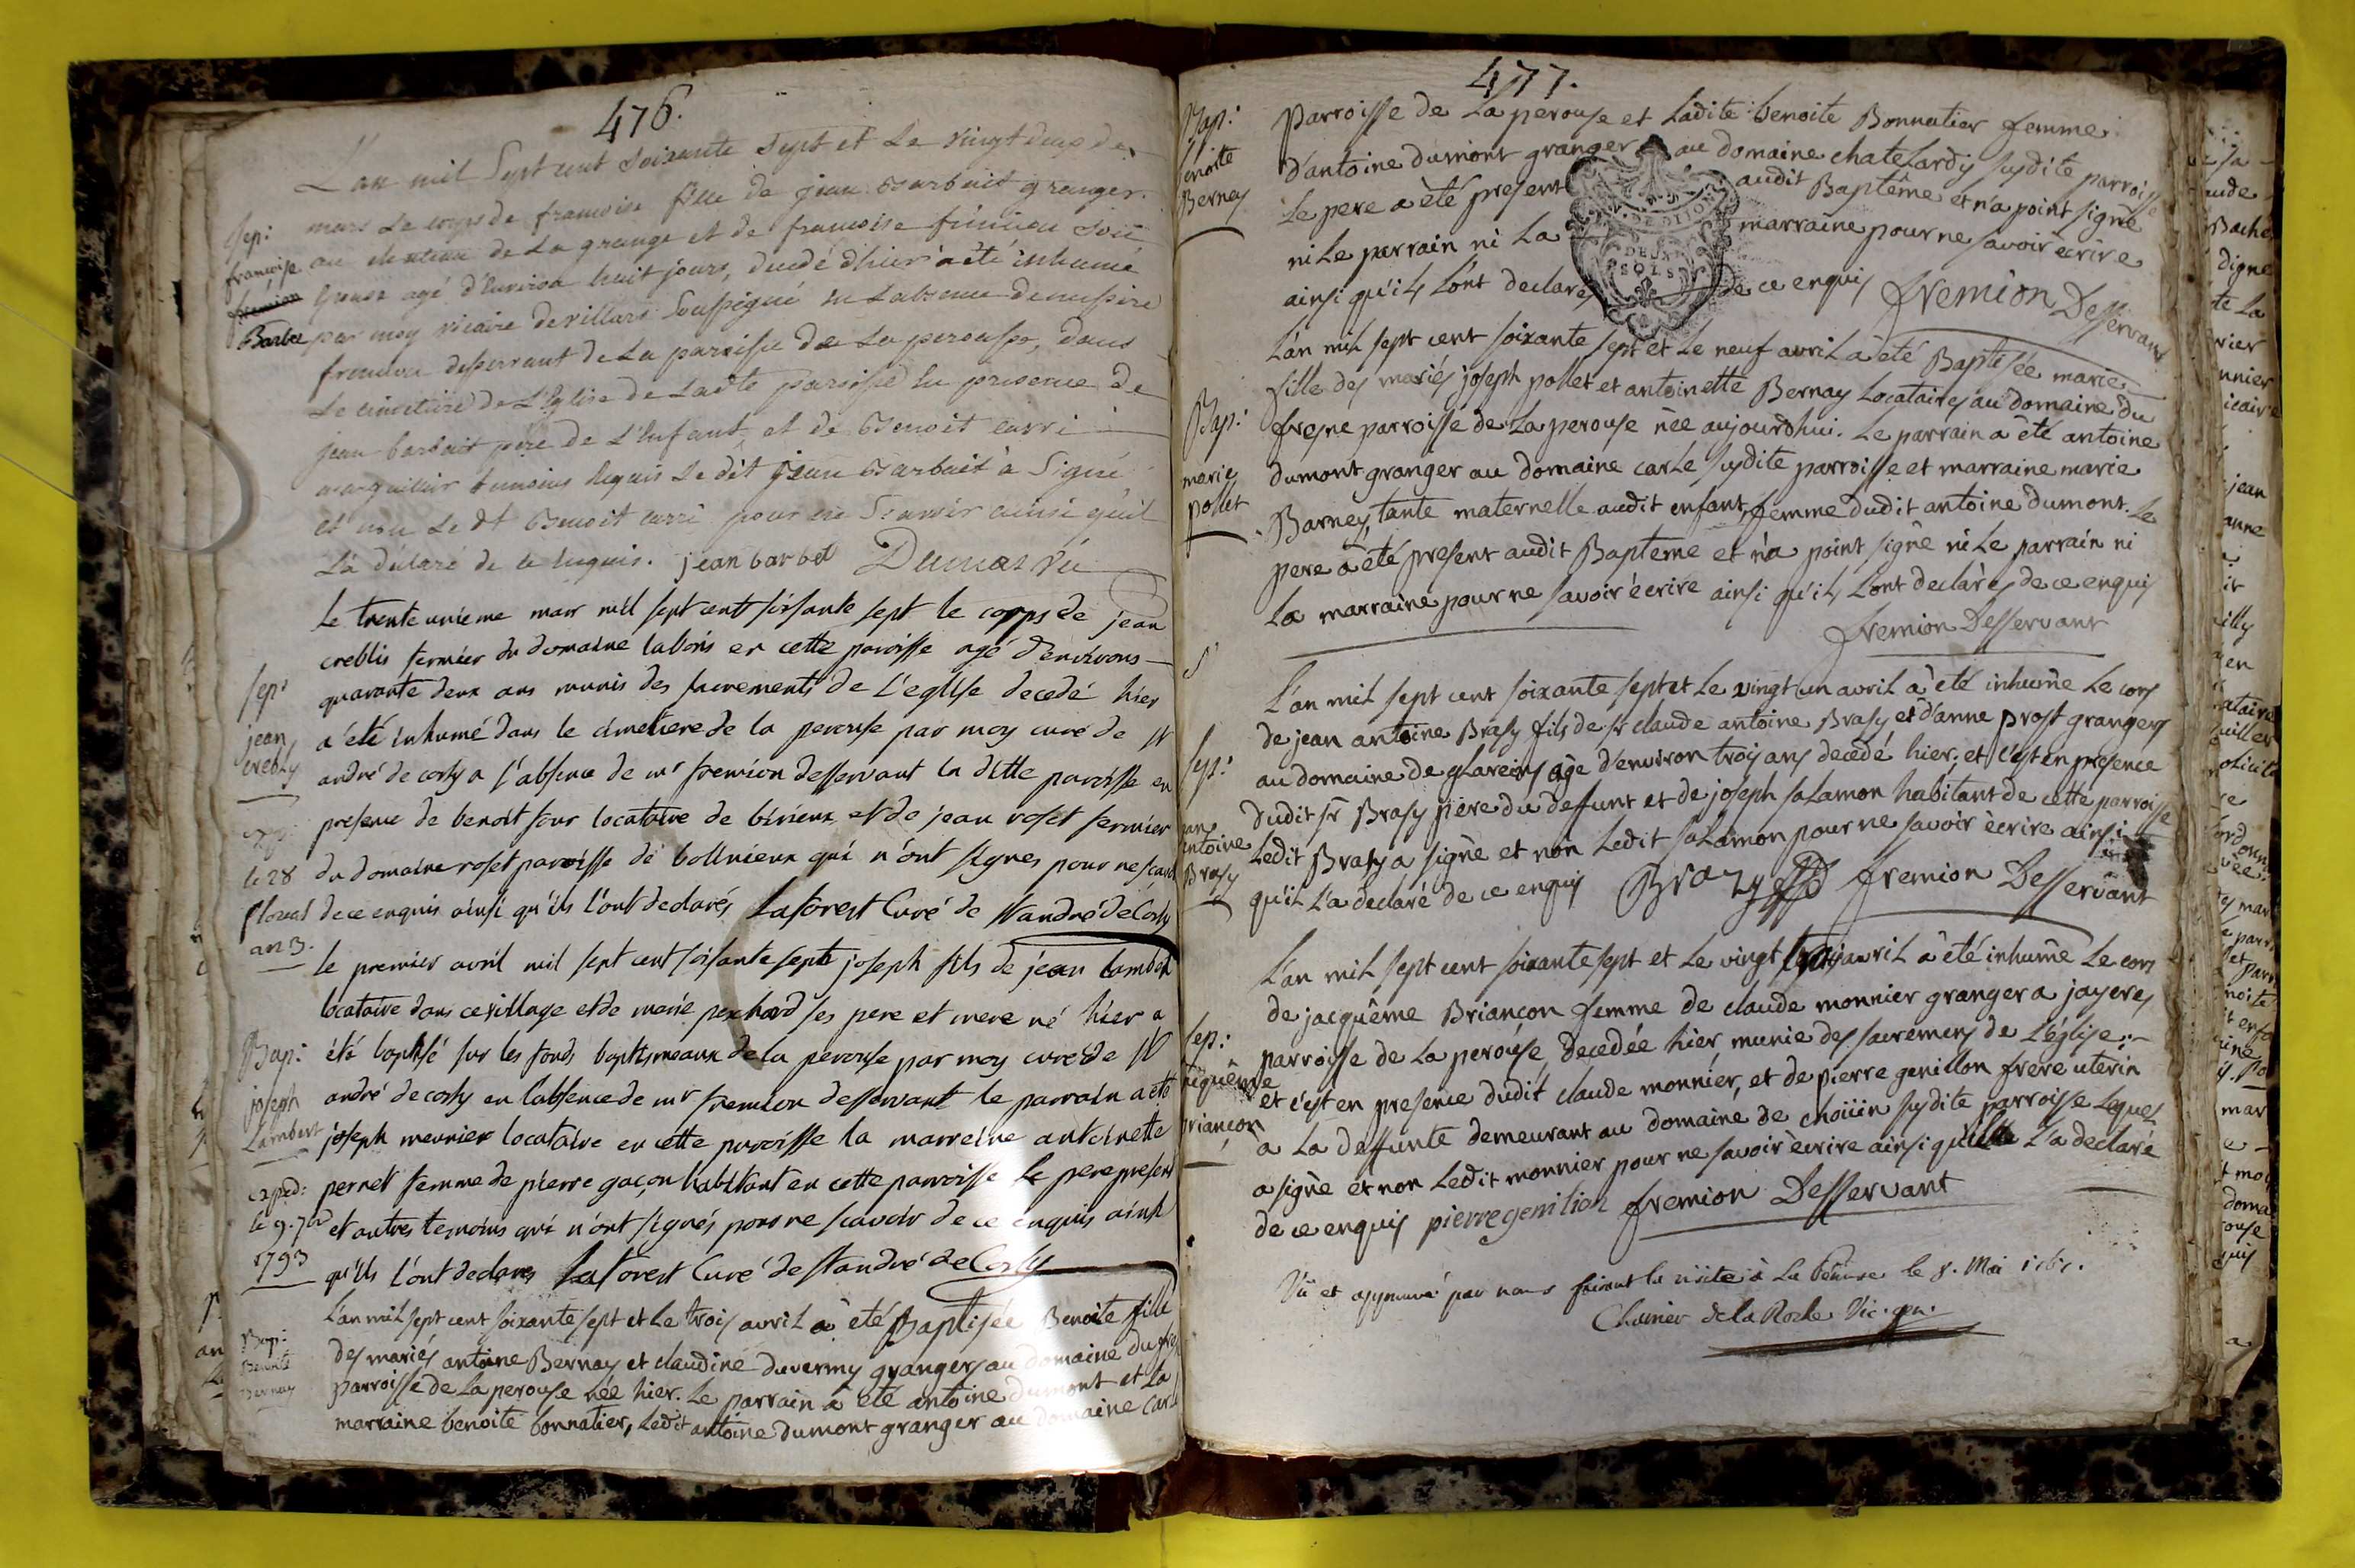 476.
L'an mil Sept cent Soixante Sept et Le Vingt deux de
mars Le corps de francoise fille de jean Barbait granger
au chateau de La grange et de francoise
agé d'Environ huit jours, decedé d'hier à eté inhumé
par moy vicaire de villars Soussigné En L'absence de messire
fremion desservant de La paroisse de La perouse, dans
Le cimetiere de L'Eglise de Ladte paroisse En presence de
jean barbait pere de L'Enfant, et de Benoit carri
marguillier temoins lequels Le dit jean Barbait à Signé
et non Le dt Benoit carri pour ne Scavoir ainsi quil
L'a déclaré de ce Enquis. jean barbet
Sep:
françoise
fremion
Barbe
le trente unieme mars mil sept cent soisante sept le corps de jean
creblis fermier du domaine labois en cette paroisse agé d'environs
quarante deux ans munis des sacrements de L'eglise decedé hier
a été inhumé dans le cimetiere de la perouse par moy curé de st
andré de corsy a l'absence de mr fremion desservant la ditte paroisse en
presence de benoit four locataire de birieux et de jean roset fermier
du domaine roset paroisse de bollnieux qui n'ont signes pour ne scav
de ce enquis ainsi qu'ils l'ont declarés Laforest Curé de st andré de Corsy
Sep:
jean
crebly
le 28
floreal
an 3.
le premier avril mil sept cent soisante sept joseph fils de jean lambert
locataire dans ce village et de marie pexhard ses pere et mere né hier a
été baptisé sur les fonds baptismeaux de la perouse par moy curé de st
andré de corsy en l'absence de mr fremion desservant le parrain a eté
joseph meunier locataire en cette paroisse la marreine antoinette
pernet femme de pierre gaçon habitant en cette paroisse le pere present
et autres temoins qui n'ont signés pour ne scavoir de ce enquis ainsi
qu'ils l'ont declarés Laforest Curé de st andré de Corsy
Bap:
joseph
Lambert
exped:
le 9. 7bre
1793
L'an mil sept cent soixante sept et Le trois avril a été Baptisée Benoite fille
des mariés antoine Bernay et claudine duvermy grangers au domaine du fres
parroisse de La perouse née hier. Le parrain à été antoine dumont et La
marraine benoite bonnatier, Ledit antoine dumont granger au domaine Carl
Bap:
Benoite
Bernay
477.
Parroisse de La perouse et Ladite benoite Bonnatier femme
d'antoine dumont granger au domaine chatelardy susdite parroisse
Le pere a été present audit Baptême et n'a point signé
ni Le parrain ni La marraine pour ne savoir ecrire
ainsi qu'ils L'ont declarés de ce enquis fremion Desservant
DE DIJON
DEUX
SOLS
Bap:
Benoite
Bernay
L'an mil sept cent soixante sept et Le neuf avril à été Baptisée marie
fille des mariés joseph pollet et antoinette Bernay Locataires au domaine du
fresne parroisse de La perouse née aujourdhui. Le parrain a été antoine
dumont granger au domaine carle susdite parroisse et marraine marie
Barney, tante maternelle audit enfant, femme dudit antoine dumont. Le
pere a été present audit Baptême et n'a point signé ni Le parrain ni
La marraine pour ne savoir écrire ainsi qu'ils L'ont declarés de ce enquis
fremion Desservant
Bap:
marie
pollet
L'an mil sept cent soixante sept et Le vingt un avril à été inhumé Le cors
de jean antoine Brasy fils de sr claude antoine Brasy et d'anne prost grangers
au domaine de glareins âgé d'environ trois ans decedé hier; et c'est en presence
dudit sr Brasy père du deffunt et de joseph salamon habitant de cette parroisse
Ledit Brasy a signé et non Ledit salamon pour ne savoir écrire ainsi
qu'il L'a declaré de ce enquis Brazy fremion Desservant
Sep:
jean
antoine
Brasy
L'an mil sept cent soixante sept et Le vingt trois avril à été inhumé Le cors
de jacquême Briançon femme de claude monnier granger a jayeres
parroisse de La perouse, decedée hier, munie des sacremens de L'église
et c'est en presence dudit claude monnier, et de pierre genillon frere uterin
a La deffunte demeurant au domaine de choiiin susdite parroisse Lequel
a signé et non Ledit monnier pour ne savoir ecrire ainsi qu'il L'a declaré
de ce enquis pierre genilion fremion Desservant
Sep:
Briançon
Vu et approuvé par nous faisant la visite à La Pérouse le 8. Mai
Charrier de la Roche Vic. gen.